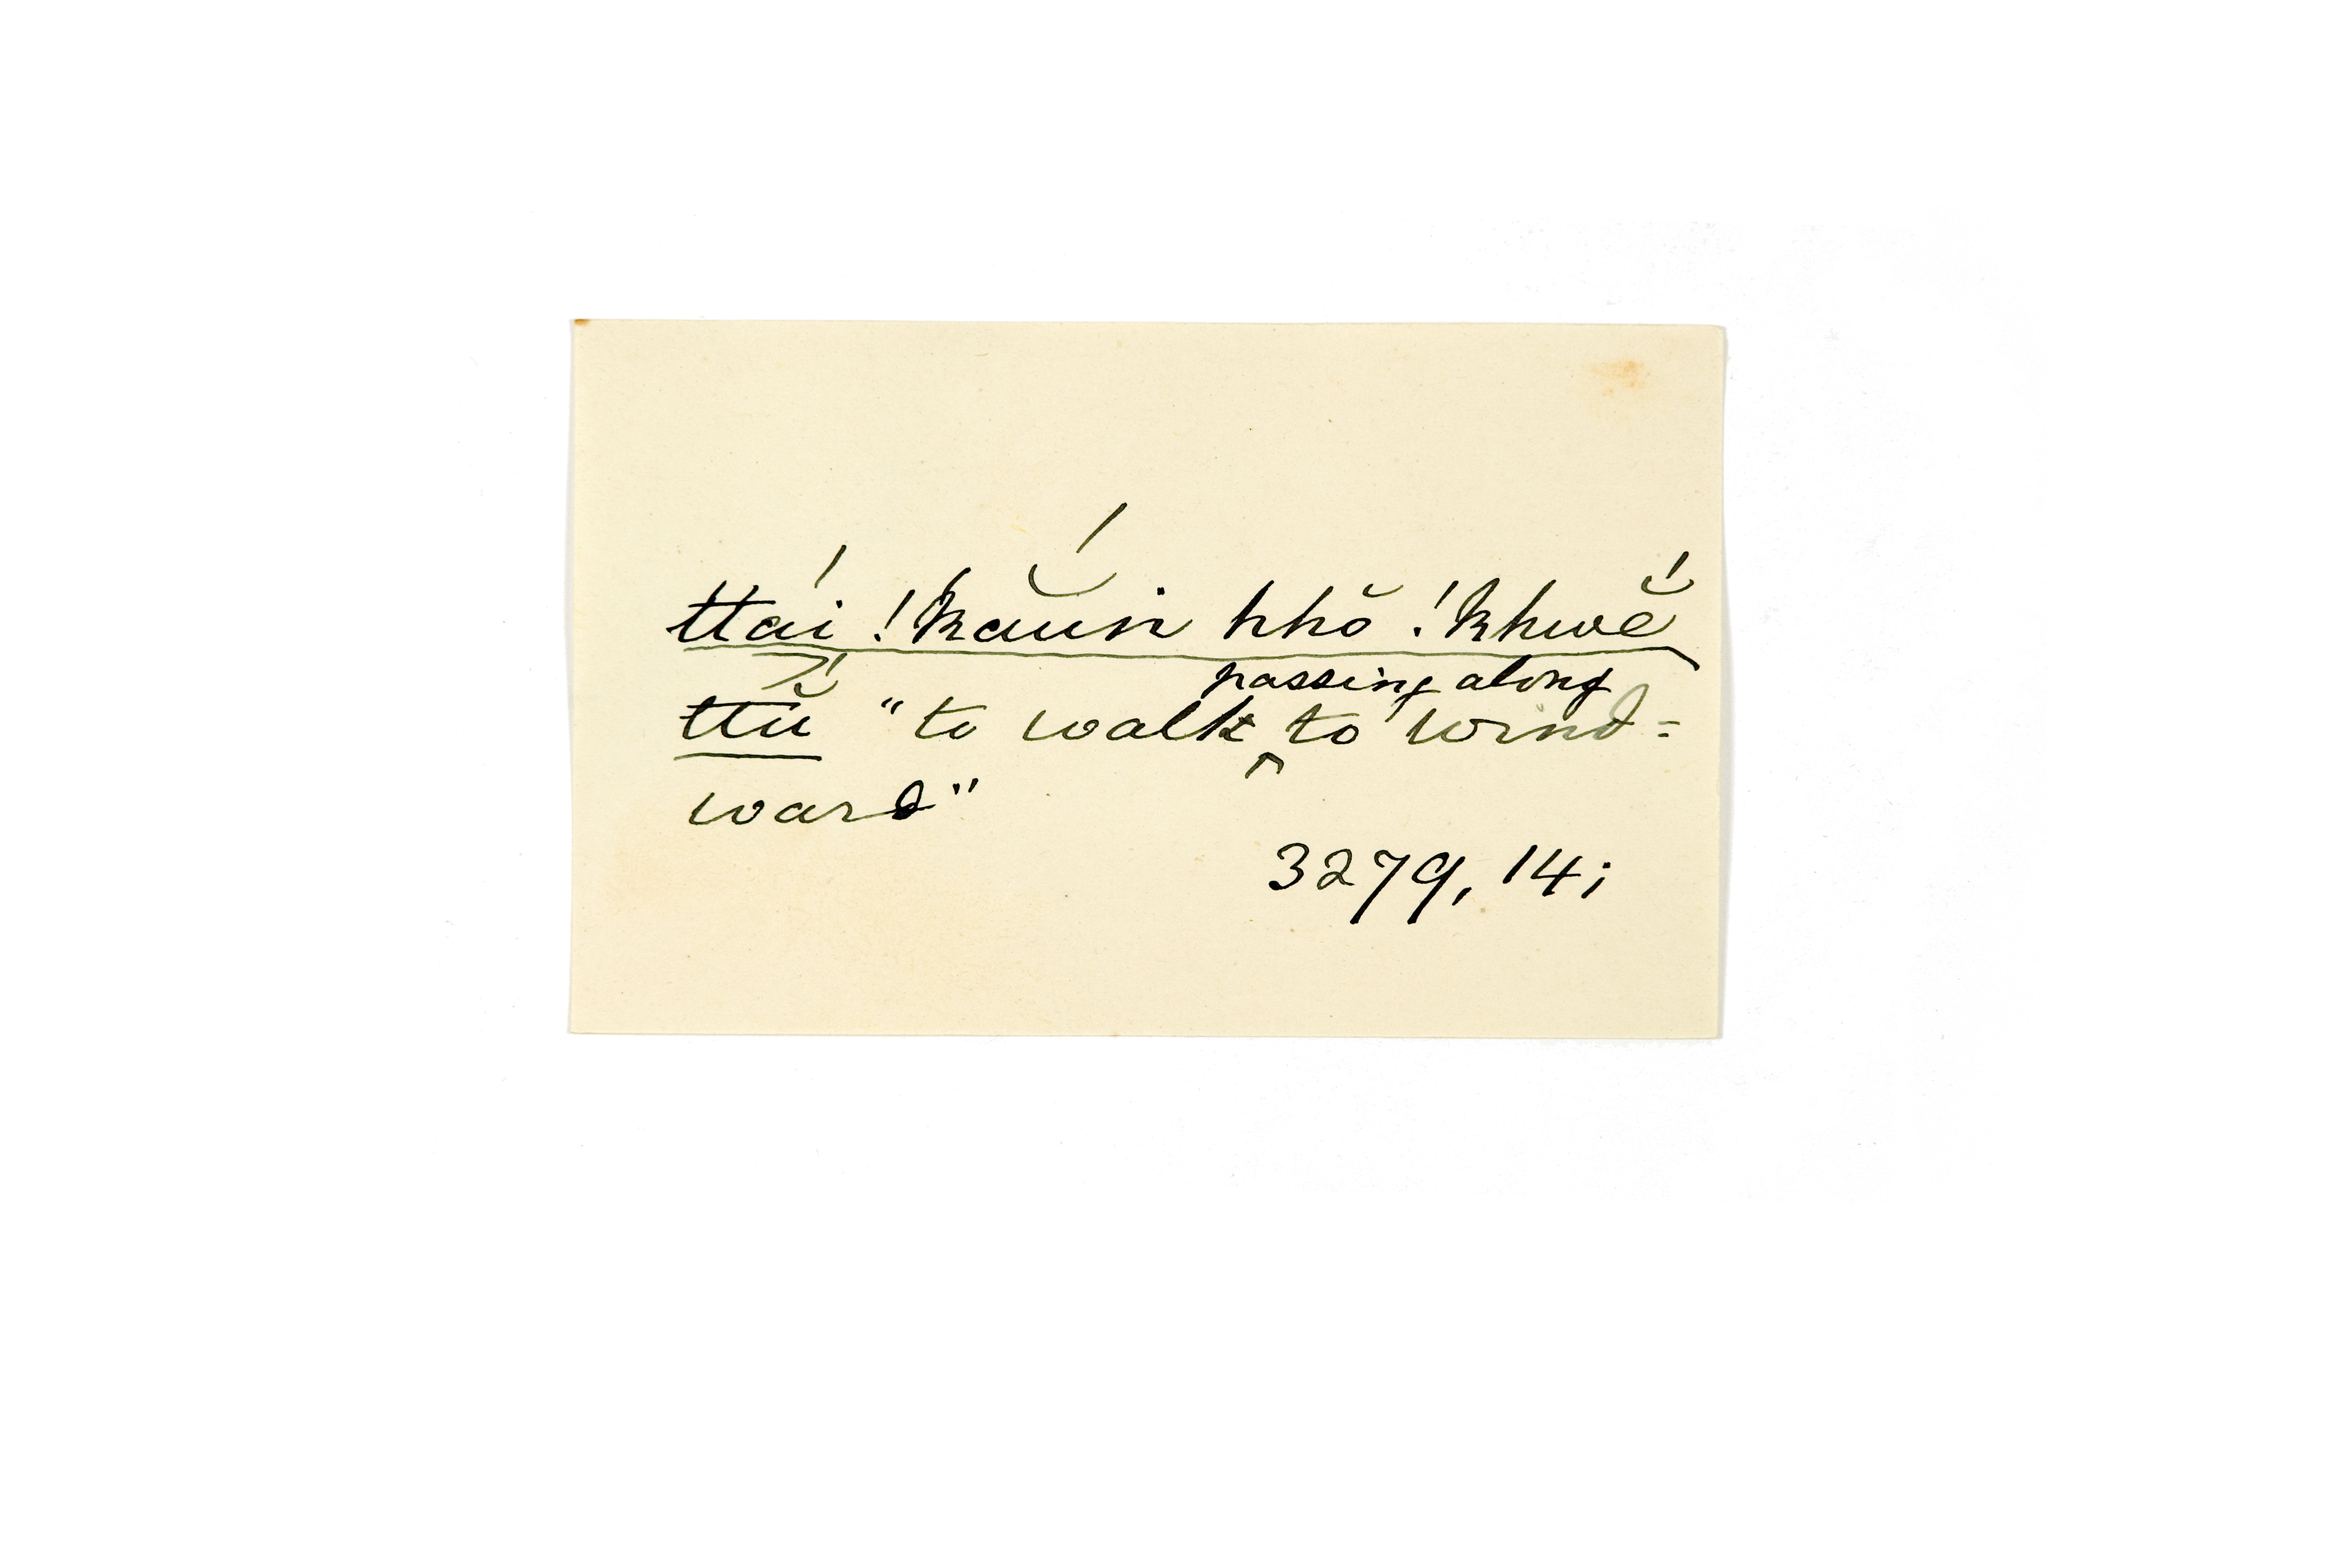 ttái !kắun hhŏ !khwĕ́
ttŭ́ "to walk passing along to wind=
ward"
3279, 14;